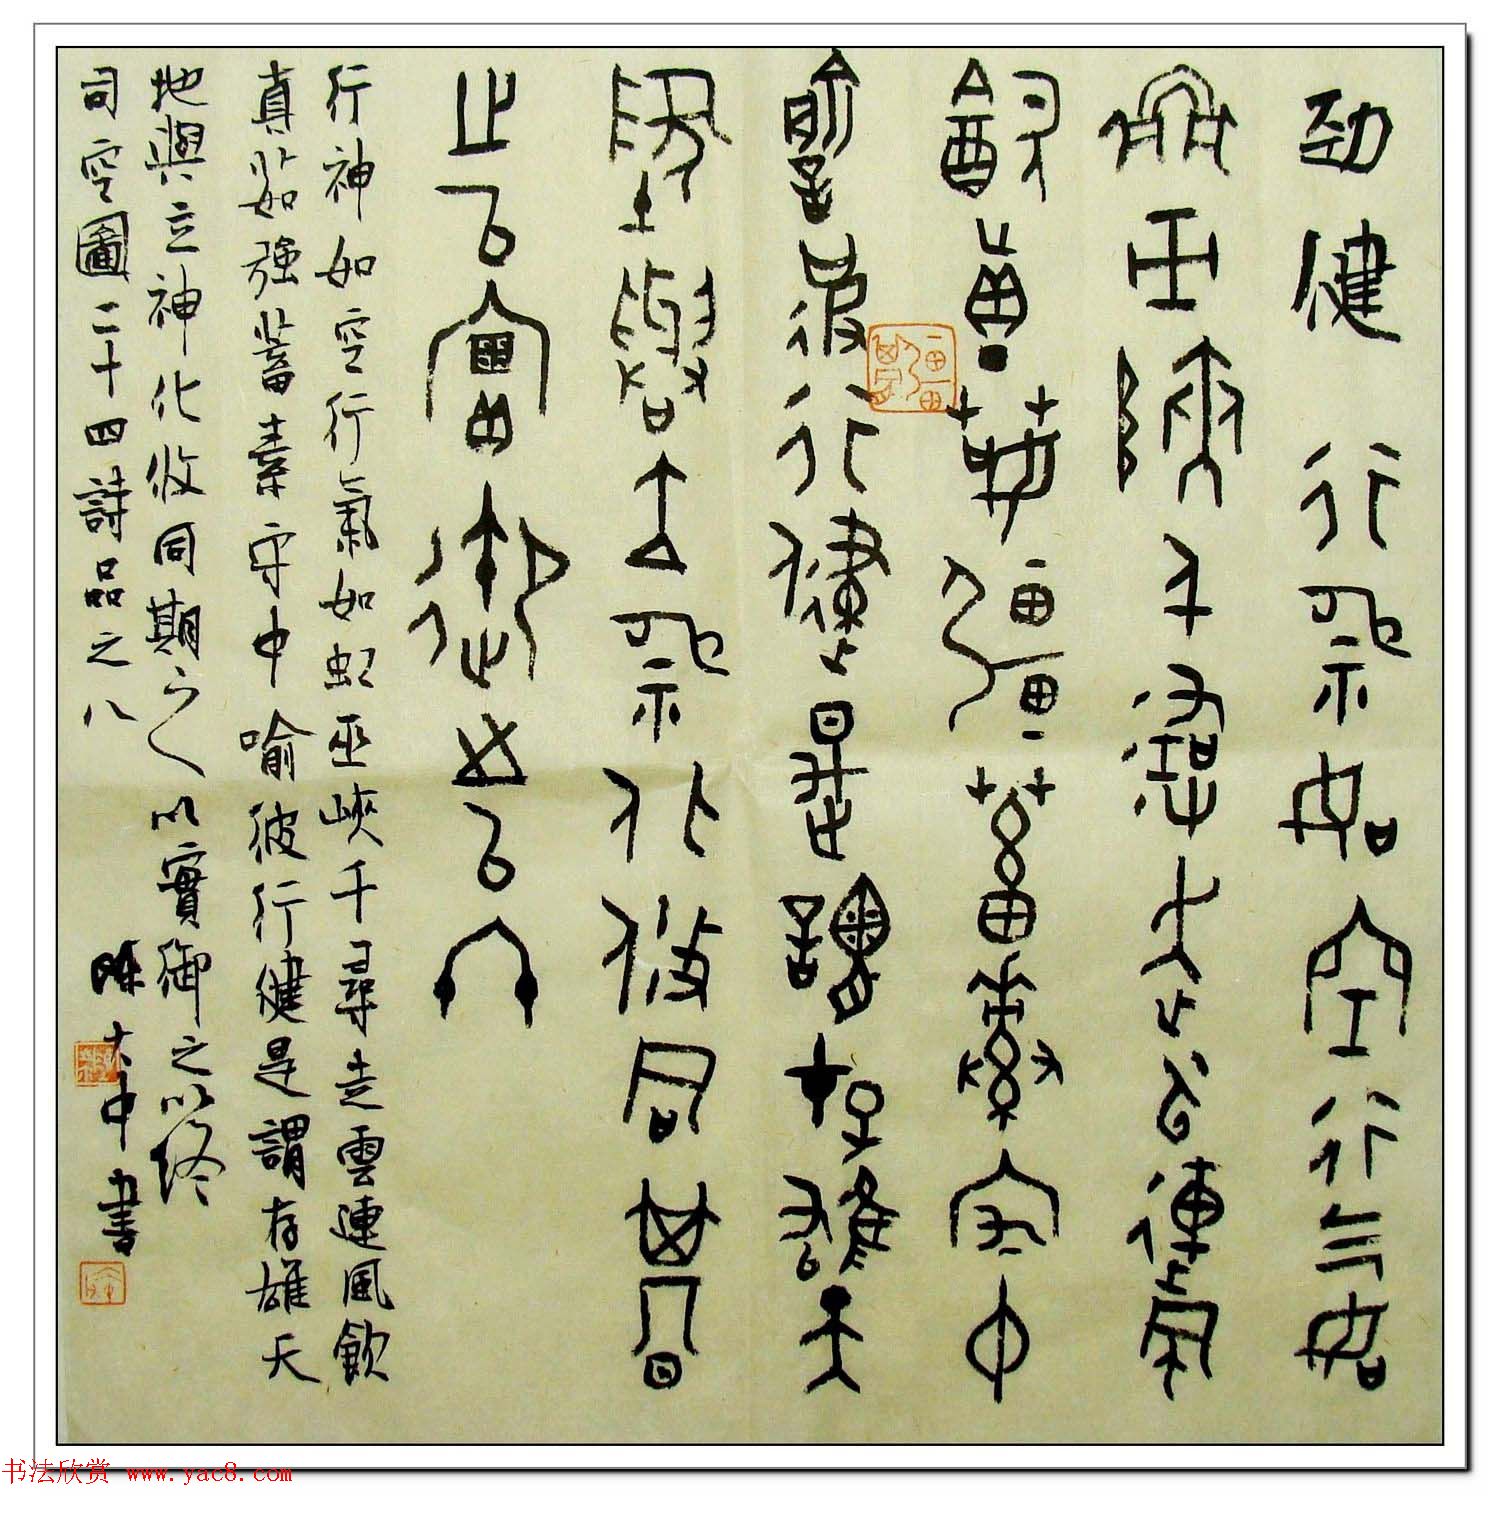 劲健 行神如空行气如
虹巫峽千尋走云連風
飲真茹彊蓄素守中
喻彼行健是謂存雄天
地與立神化攸同期
之以實御之以終
行神如空行氣如虹巫峽千尋走雲連風飲
真茹強蓄素守中喻彼行健是謂存雄天
地與立神化攸同期之以實御之以終
司空圖二十四詩品之八
陳大中書
书法欣赏 www.yac8.com